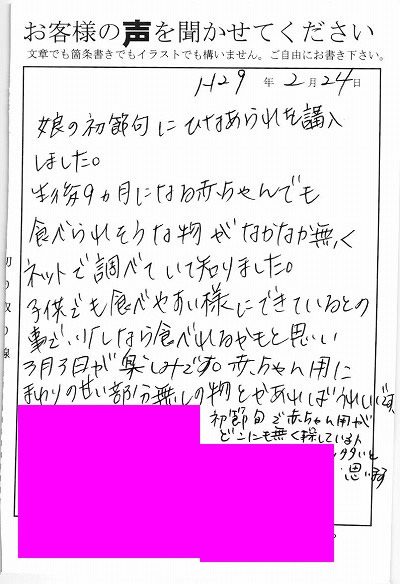 お客様の声を聞かせてください
文章でも箇条書きでもイラストでも構いません。ご自由にお書き下さい。
H29年2月24日
娘の初節句にひなあられを購入
しました。
生後9ヵ月になる赤ちゃんでも
食べられそうな物がなかなか無く
ネットで調べていて知りました。
子供でも食べやすい様にできているとの
事で少しなら食べれるかもと思い
3月3日が楽しみです。赤ちゃん用に
まわりの甘い部分無しの物とかあればうれしいです
初節句で赤ちゃん用が
どこにも無く探している人
たいと
思います
切り取り線